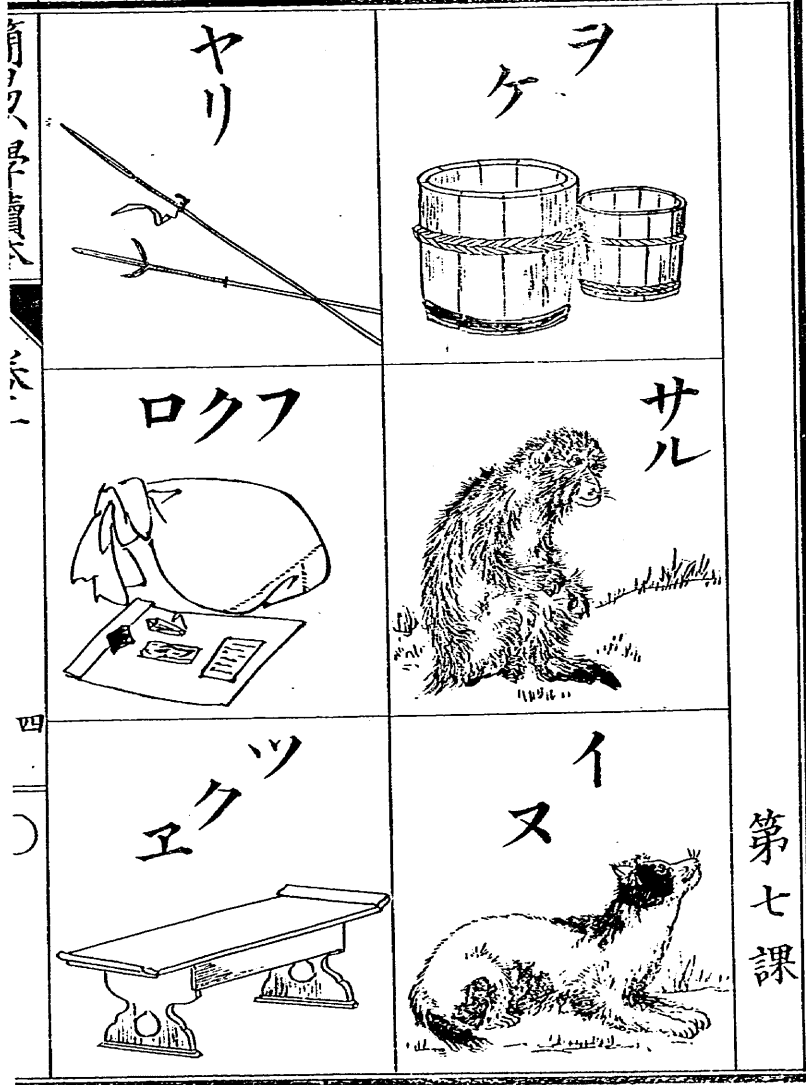 第七課
ヲケ
サル
イヌ
ヤリ
フクロ
ツクヱ
四